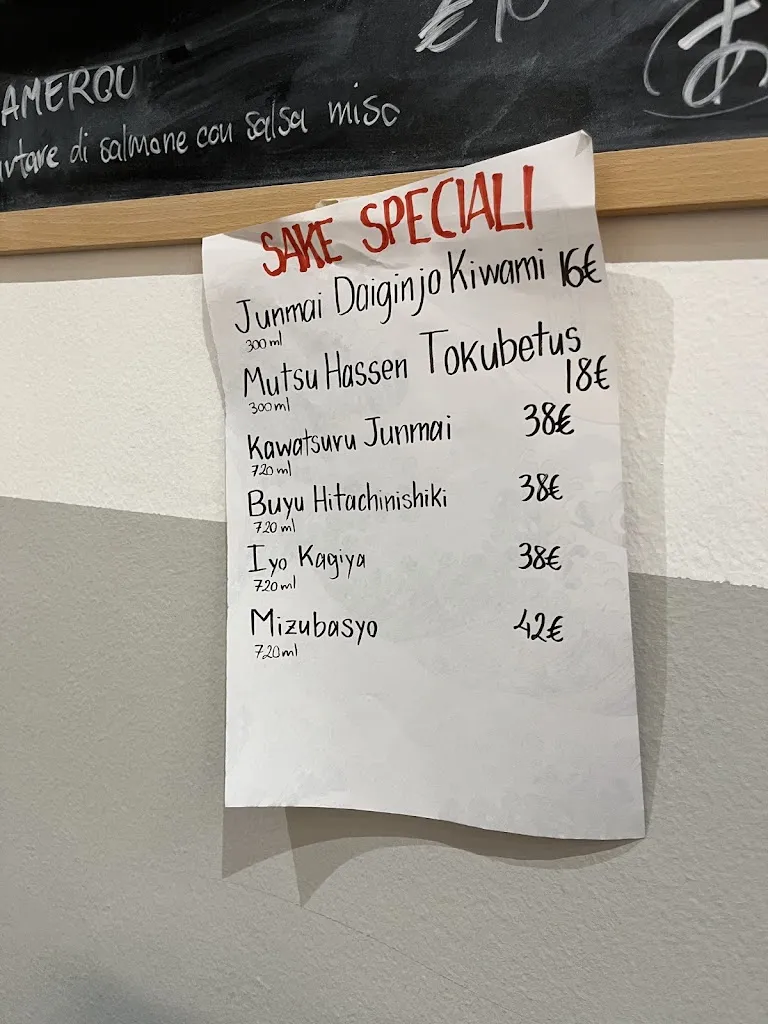 €10
あ
AMEROU
artare di salmone con salsa miso
SAKE SPECIALI
Junmai Daiginjo Kiwami 16€
300ml
Mutsu Hassen Tokubetus
18€
300ml
Kawatsuru Junmai 38€
720ml
Buyu Hitachinishiki 38€
720ml
Iyo Kagiya 38€
720ml
Mizubasyo 42€
720ml